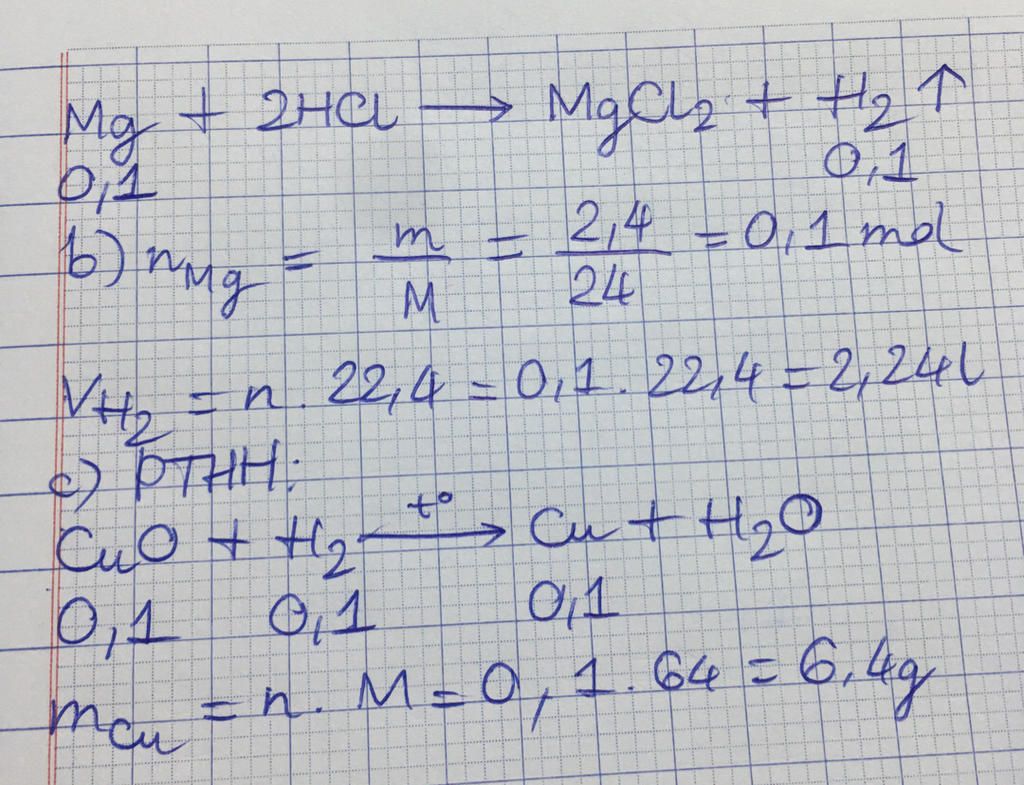 Mg + 2HCl → MgCl₂ + H₂ ↑
0,1 0,1
b) n_Mg = m/M = 2,4/24 = 0,1 mol
V_H₂ = n. 22,4 = 0,1. 22,4 = 2,24l
c) PTHH:
CuO + H₂ —t°→ Cu + H₂O
0,1 0,1 0,1
m_Cu = n. M = 0,1. 64 = 6,4g